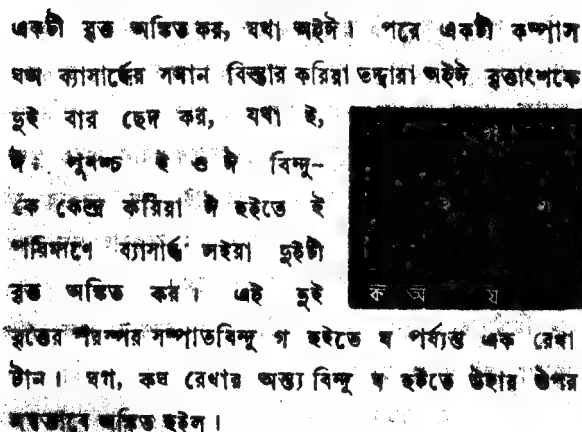 একটী বৃত্ত অঙ্কিত কর, যথা অইঈ। পরে একটী কম্পাস
ব্যাসার্দ্ধের সমান বিস্তার করিয়া তদ্দ্বারা অইঈ বৃত্তাংশকে
দুই বার ছেদ কর, যথা ই,
ঈ। পুনশ্চ ই ও ঈ বিন্দু-
কে কেন্দ্র করিয়া ঈ হইতে ই
পরিমাণে ব্যাসার্দ্ধ লইয়া দুইটী
বৃত্ত অঙ্কিত কর। এই দুই
ক অ য
বৃত্তের পরস্পর সম্পাতবিন্দু গ হইতে য পর্য্যন্ত এক রেখা
টান। যগ, কয রেখার অন্ত্য বিন্দু য হইতে উহার উপর
লম্বভাবে অঙ্কিত হইল।